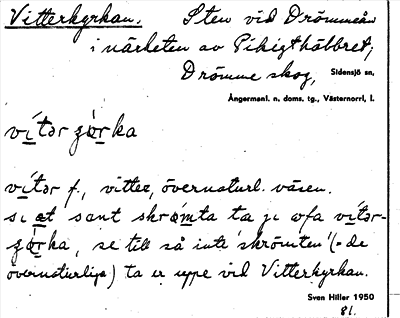 Vitterkyrkan. Sten vid Drömmeån
i närheten av Pikigthälbret,
Drömme skog, Sidensjö sn,
Ångermanl. n. doms. tg., Västernorrl. l.
vítər
vítər f., vitter, övernaturl. väsen.
sant ta vítər-
se till så inte 'skrömten' (= de
övernaturliga) ta er uppe vid Vitterkyrkan.
Sven Hiller 1950
81.